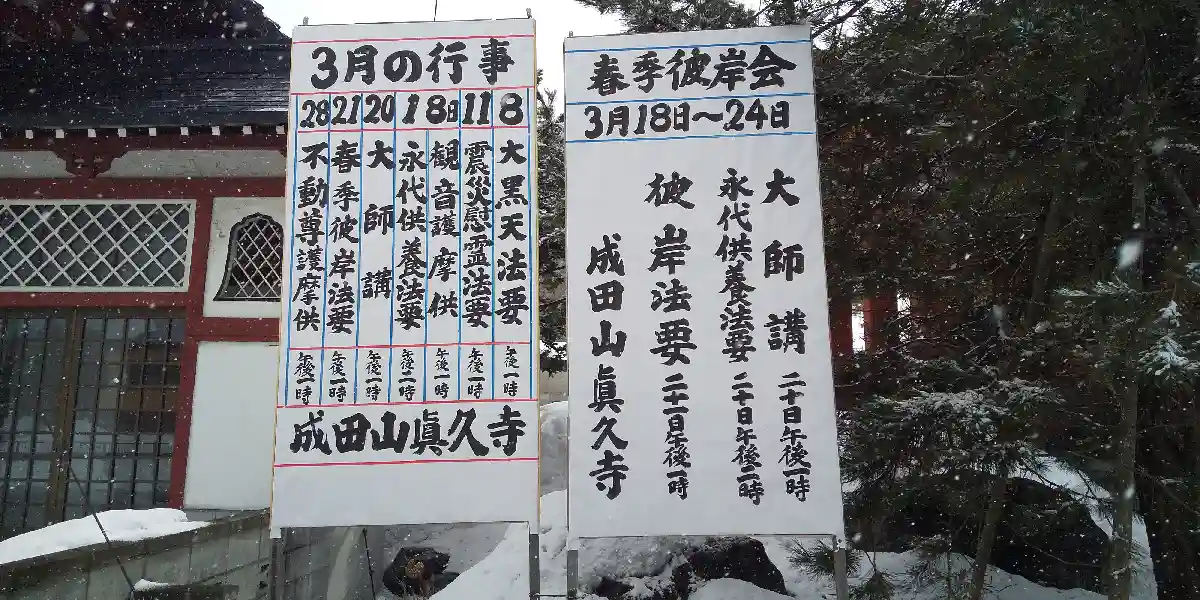 3月の行事
8 大黒天法要 午後一時
11 震災慰霊法要 午後一時
18日 観音護摩供 午後一時
永代供養法要 午後一時
20 大師講 午後一時
21 春季彼岸法要 午後一時
28 不動尊護摩供 午後一時
成田山眞久寺
春季彼岸会
3月18日～24日
大師講 二十日午後一時
永代供養法要 二十日午後二時
彼岸法要 二十一日午後一時
成田山眞久寺